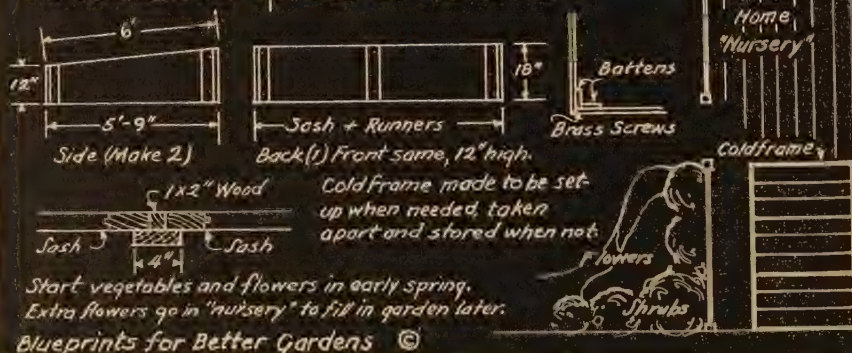 6'
12"
5'-9"
Side (Make 2)
18"
Sash + Runners
Back (1) Front same, 12" high.
Battens
Brass Screws
Home
"Nursery"
Coldframe
1x2" Wood
Sash
Sash
4"
Cold frame made to be set-
up when needed, taken
apart and stored when not.
Flowers
Shrubs
Start vegetables and flowers in early spring.
Extra flowers go in "nursery" to fill in garden later.
Blueprints for Better Gardens ©